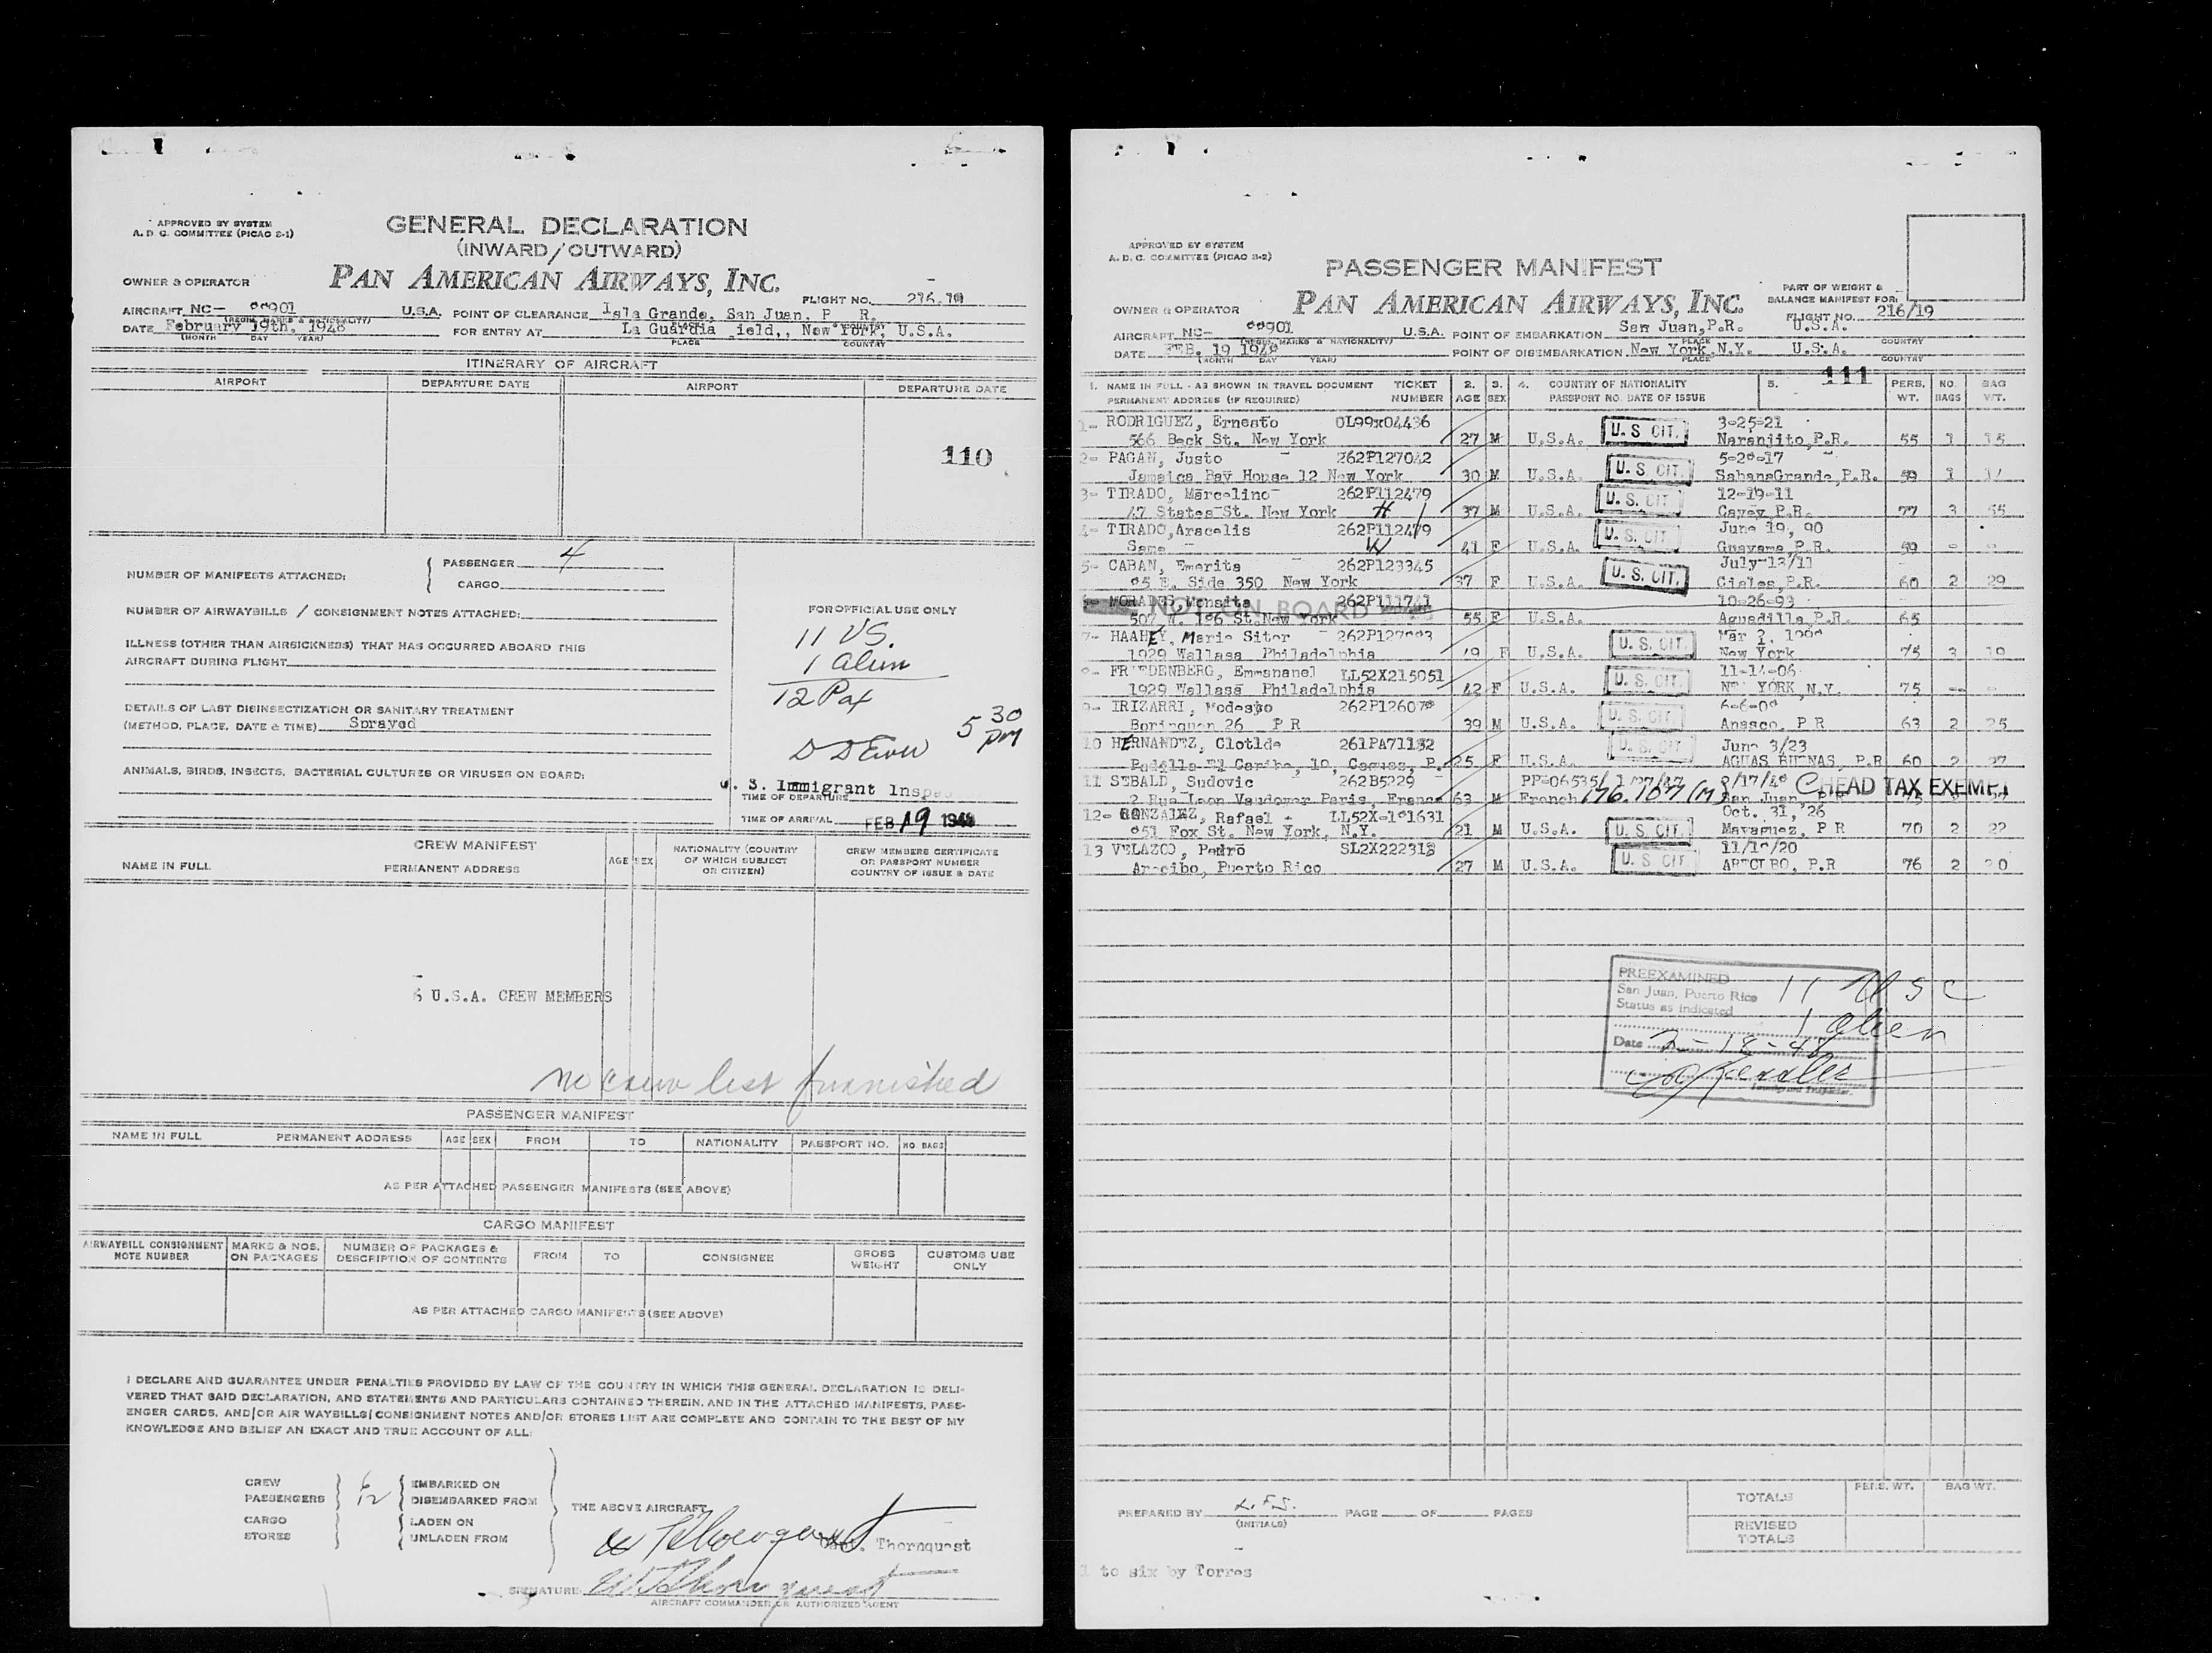 APPROVED BY SYSTEM
A. D. C. COMMITTEE (PICAO 2-1)
GENERAL DECLARATION
(INWARD/OUTWARD)
OWNER & OPERATOR
PAN AMERICAN AIRWAYS, INC.
FLIGHT NO.
AIRCRAFT NC- 00901 U.S.A. POINT OF CLEARANCE Isla Grande, San Juan. P R.
(REGIS. MARKS & NATIONALITY) PLACE COUNTRY
DATE February 19th. 1948 FOR ENTRY AT La Guardia ield,, New York, U.S.A.
(MONTH DAY YEAR) PLACE COUNTRY
ITINERARY OF AIRCRAFT
AIRPORT DEPARTURE DATE AIRPORT DEPARTURE DATE
110
NUMBER OF MANIFESTS ATTACHED: PASSENGER 4
CARGO
NUMBER OF AIRWAYBILLS / CONSIGNMENT NOTES ATTACHED:
ILLNESS (OTHER THAN AIRSICKNESS) THAT HAS OCCURRED ABOARD THIS
AIRCRAFT DURING FLIGHT
DETAILS OF LAST DISINSECTIZATION OR SANITARY TREATMENT
(METHOD, PLACE, DATE & TIME) Sprayed
ANIMALS, BIRDS, INSECTS, BACTERIAL CULTURES OR VIRUSES ON BOARD:
FOR OFFICIAL USE ONLY
11 US.
1 alien
12 Pax
5 30 pm
. S. Immigrant Inspe
TIME OF DEPARTURE
TIME OF ARRIVAL FEB 19 1948
CREW MANIFEST
NAME IN FULL PERMANENT ADDRESS AGE SEX NATIONALITY (COUNTRY OF WHICH SUBJECT OR CITIZEN) CREW MEMBERS CERTIFICATE OR PASSPORT NUMBER COUNTRY OF ISSUE & DATE
6 U.S.A. CREW MEMBERS
no crew list furnished
PASSENGER MANIFEST
NAME IN FULL PERMANENT ADDRESS AGE SEX FROM TO NATIONALITY PASSPORT NO. NO. BAGS
AS PER ATTACHED PASSENGER MANIFESTS (SEE ABOVE)
CARGO MANIFEST
AIRWAYBILL CONSIGNMENT NOTE NUMBER MARKS & NOS. ON PACKAGES NUMBER OF PACKAGES & DESCRIPTION OF CONTENTS FROM TO CONSIGNEE GROSS WEIGHT CUSTOMS USE ONLY
AS PER ATTACHED CARGO MANIFESTS (SEE ABOVE)
I DECLARE AND GUARANTEE UNDER PENALTIES PROVIDED BY LAW OF THE COUNTRY IN WHICH THIS GENERAL DECLARATION IS DELI-
VERED THAT SAID DECLARATION, AND STATEMENTS AND PARTICULARS CONTAINED THEREIN, AND IN THE ATTACHED MANIFESTS, PASS-
ENGER CARDS, AND/OR AIR WAYBILLS/CONSIGNMENT NOTES AND/OR STORES LIST ARE COMPLETE AND CONTAIN TO THE BEST OF MY
KNOWLEDGE AND BELIEF AN EXACT AND TRUE ACCOUNT OF ALL:
CREW 6 EMBARKED ON
PASSENGERS 12 DISEMBARKED FROM
THE ABOVE AIRCRAFT
CARGO LADEN ON
STORES UNLADEN FROM
Capt. Thornquest
SIGNATURE
AIRCRAFT COMMANDER OR AUTHORIZED AGENT
APPROVED BY SYSTEM
A. D. C. COMMITTEE (PICAO 2-2)
PASSENGER MANIFEST
OWNER & OPERATOR
PAN AMERICAN AIRWAYS, INC.
PART OF WEIGHT &
BALANCE MANIFEST FOR:
FLIGHT NO. 216/19
AIRCRAFT NC- 00901 U.S.A. POINT OF EMBARKATION San Juan,P.R. U.S.A.
(REGIS. MARKS & NATIONALITY) PLACE COUNTRY
DATE FEB. 19 1948 POINT OF DISEMBARKATION New York,N.Y. U.S.A.
(MONTH DAY YEAR) PLACE COUNTRY
111
1. NAME IN FULL - AS SHOWN IN TRAVEL DOCUMENT TICKET 2. 3. 4. COUNTRY OF NATIONALITY 5. PERS. NO. BAG
PERMANENT ADDRESS (IF REQUIRED) NUMBER AGE SEX PASSPORT NO. DATE OF ISSUE WT. BAGS WT.
1- RODRIGUEZ, Ernesto 0L99x04436 3-25-21
566 Beck St. New York 27 M U.S.A. U. S CIT. Naranjito,P.R. 55 1 15
2- PAGAN, Justo 262P127042
Jamaica Bay House 12 New York 30 M U.S.A. U. S. CIT. SabanaGrande,P.R. 59 1
3- TIRADO, Marcelino 262P112479 12-19-11
47 States St. New York H 37 M U.S.A. U. S. CIT Cayey P.R. 77 3 55
4- TIRADO,Aracelis 262P112479 June 19, 90
Same W 41 F U.S.A. U. S. CIT. Guayama,P.R. 59
5- CABAN, Emerita 262P123345 July-13/11
E. Side 350 New York 37 F U.S.A. U. S. CIT. Ciales,P.R. 60 2 29
MORALES,Monsita 262P111741 10-26-93
NOT ON BOARD
507 W. 186 St.New York 55 F U.S.A. Aguadilla,P.R. 65
7- HAAHEY, Marie Siter
1929 Wallasa Philadelphia F U.S.A. U. S. CIT. New York 75 3
FRIEDENBERG, Emmananel LL52X215051 11-14-06
1929 Wallasa Philadelphia 42 F U.S.A. U. S. CIT. NEW YORK,N.Y. 75
IRIZARRI, Modesto
Borinquen 26 P R 39 M U.S.A. U. S. CIT. Anasco, P R 63 2 25
10 HERNANDEZ, Clotlde 261PA71132 June 3/23
Padilla El Caribe, 10, Caguas, P. 25 F U.S.A. U. S. CIT AGUAS BUENAS, P.R 60 2 27
11 SEBALD, Sudovic 262B5229 PP-06535/ HEAD TAX EXEMPT
2 Rue Leon Vaudoyer Paris, France 63 M French 176.107 (M) San Juan, P R
12- GONZALEZ, Rafael LL52X-191631 Oct. 31, 26
Fox St. New York, N.Y. 21 M U.S.A. U. S. CIT. Mayaguez, P R 70 2 22
13 VELAZCO, Pedro SL2X222318
Arecibo, Puerto Rico 27 M U.S.A. U. S CIT. ARECIBO, P.R 76 2 20
PREEXAMINED
San Juan, Puerto Rico
Status as indicated
11 USC
1 alien
Date 2-18-48
Immigrant Inspector.
PREPARED BY L.F.S. PAGE OF PAGES
(INITIALS)
PERS. WT. BAG WT.
TOTALS
REVISED
TOTALS
1 to six by Torres